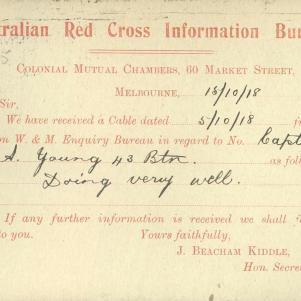 ralian Red Cross Information Bu
COLONIAL MUTUAL CHAMBERS, 60 MARKET STREET,
MELBOURNE, 15/10/18
Sir,
We have received a Cable dated 5/10/18 f
on W. & M. Enquiry Bureau in regard to No. Capt
A. Young 43 Btn. as fol
Doing very well.
If any further information is received we shall
to you. Yours faithfully,
J. BEACHAM KIDDLE,
Hon. Secre